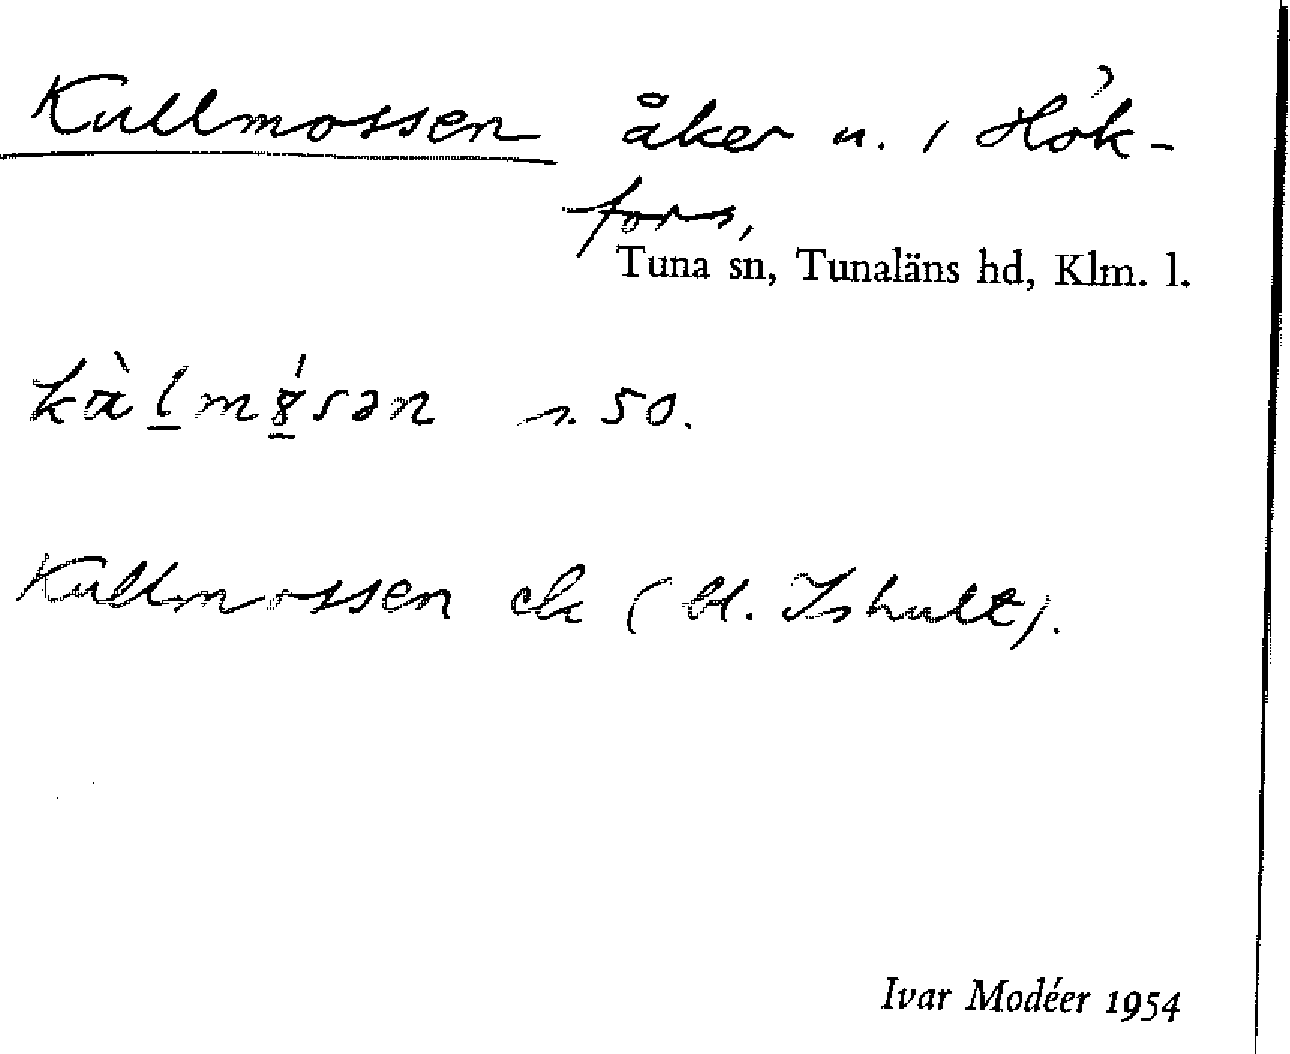 Kullmossen åker n. i Hök-
fors,
Tuna sn, Tunaläns hd, Klm. l.
s. 50.
Kullmossen ek (bl. Ishult).
Ivar Modéer 1954